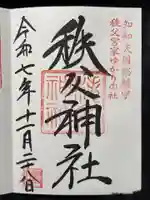 知知夫国総鎮守
秩父宮家ゆかりの社
秩父神社
令和七年十一月二日